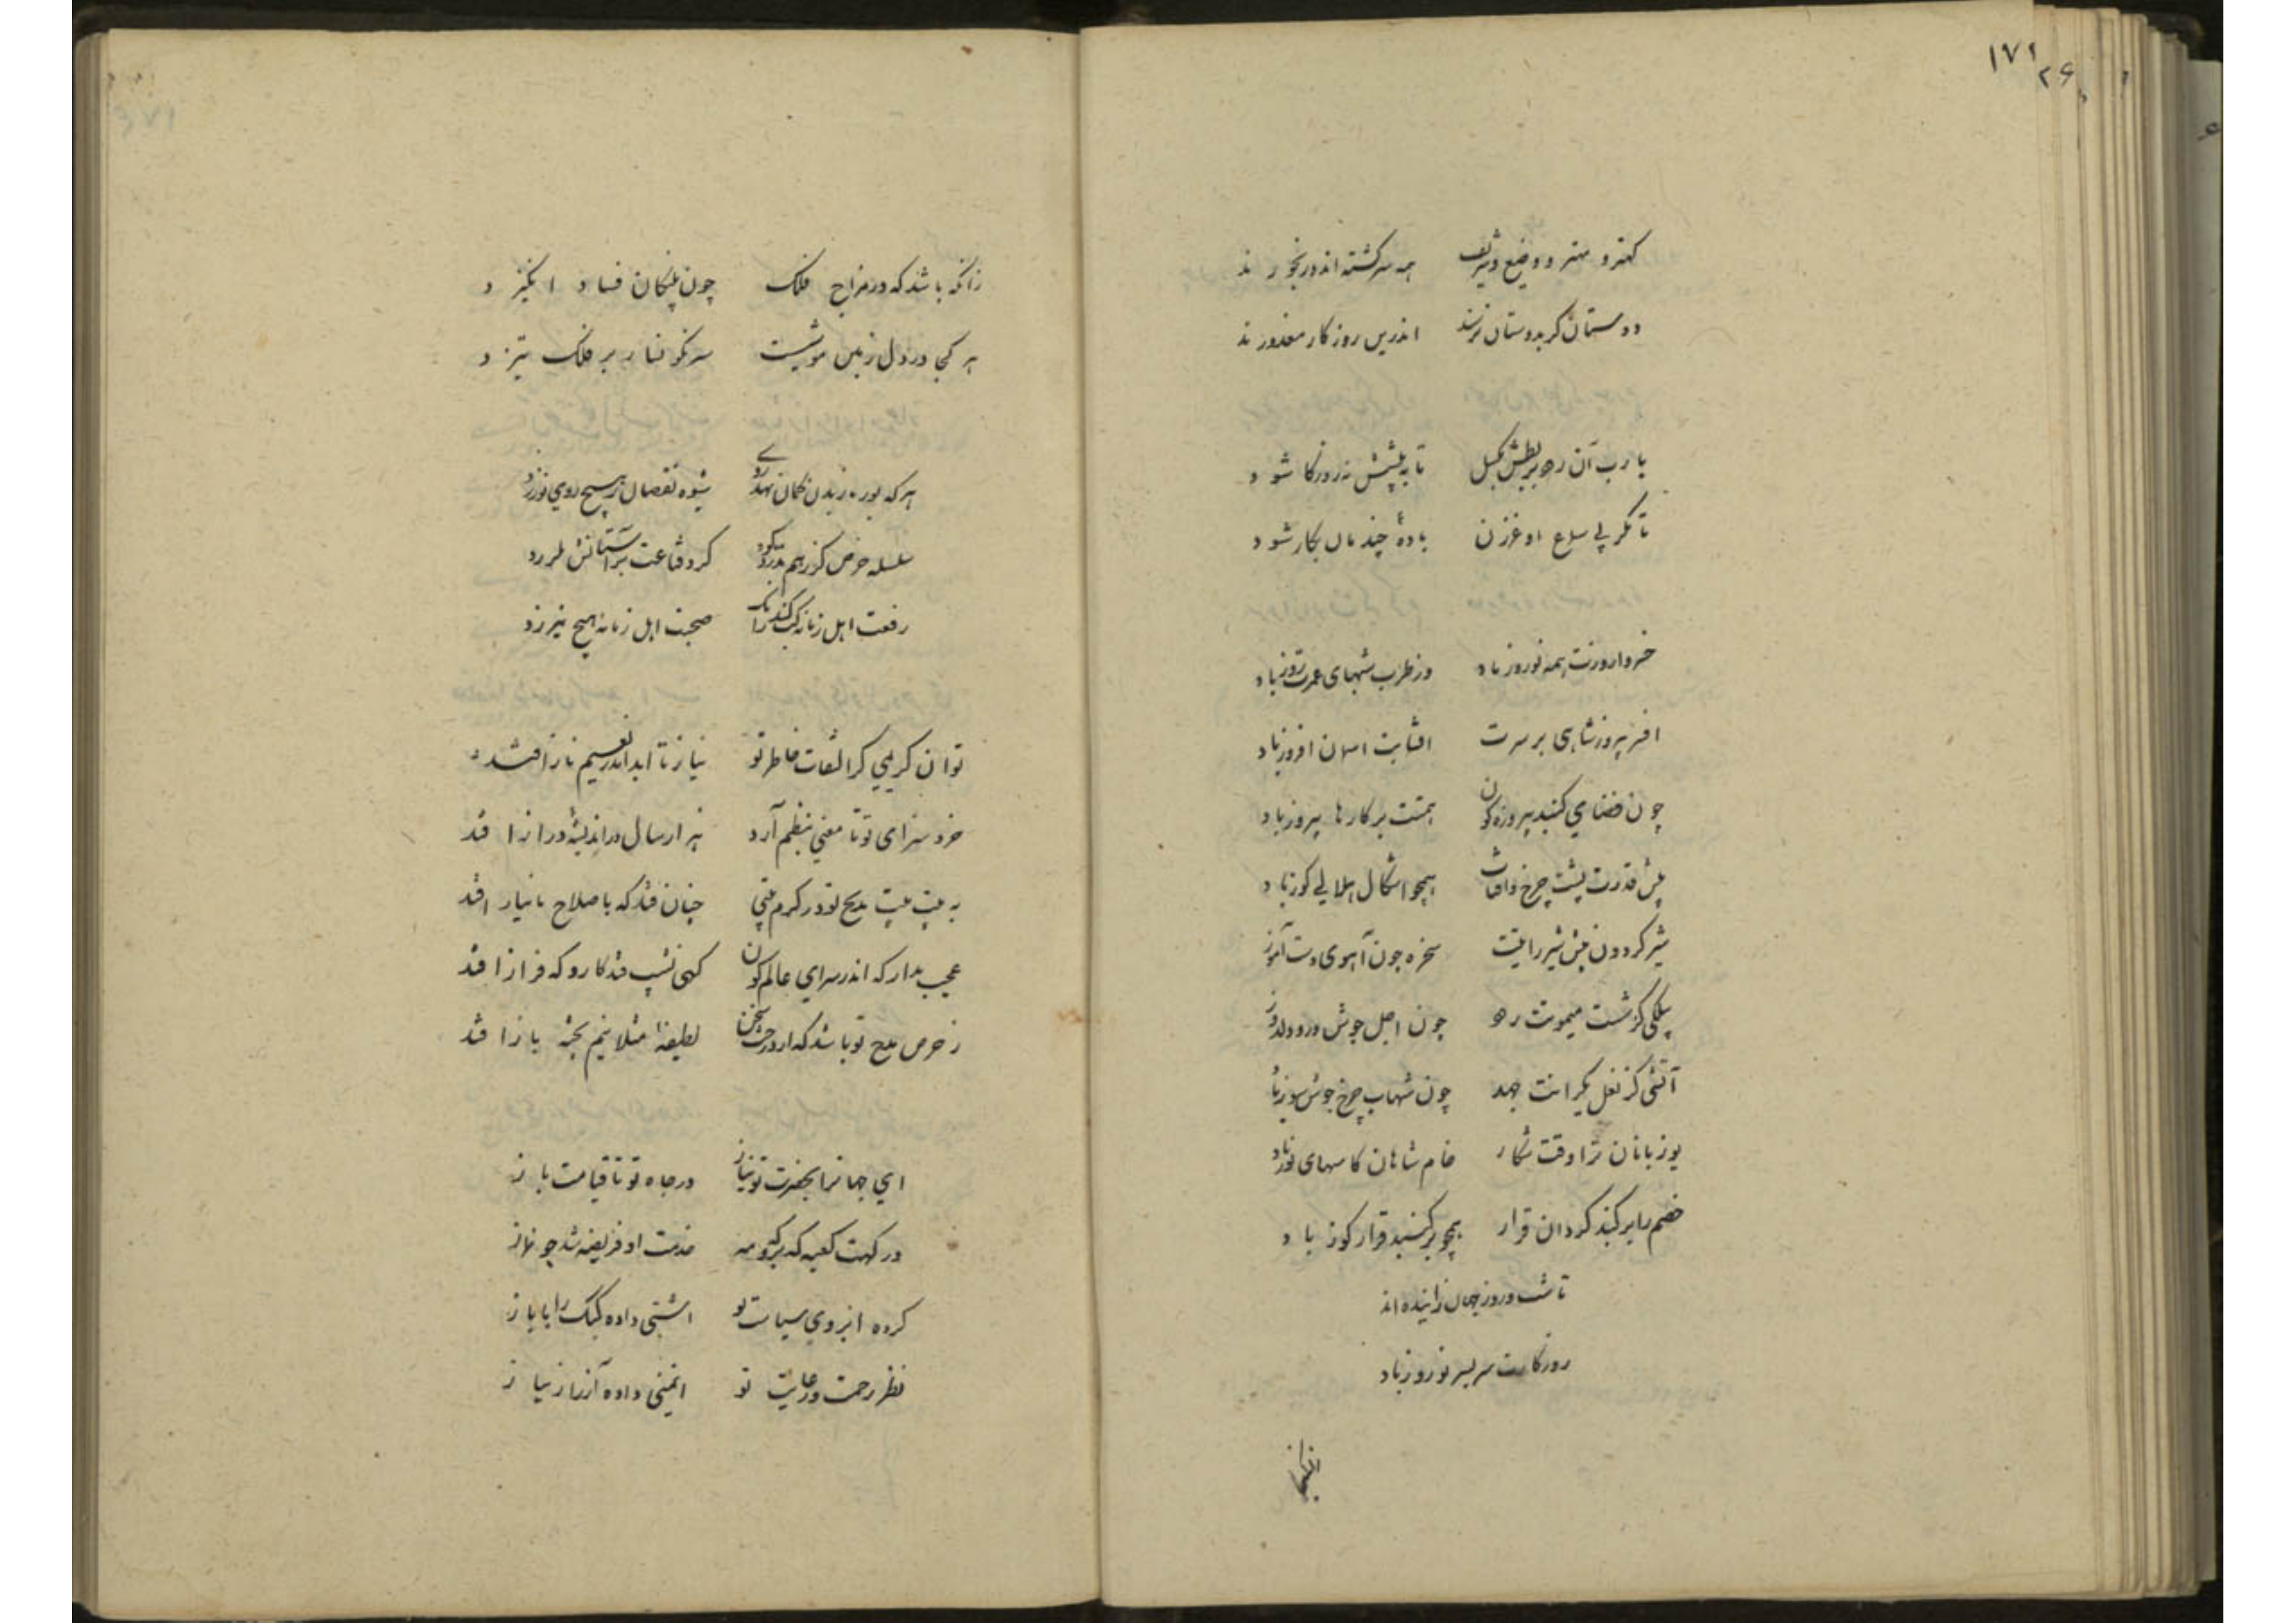 ۱۷۱
۲۶
کهتر و مهتر و وضیع و شریف همه سرگشته اند و رنجورند
دوستان گر بدوستان نرسند اندرین روزگار معذورند
یا رب آن ده تا به پیشش نه روزگار شود
تا مگر پی بادهٔ چند مان بکار شود
خسروا روزت همه نوروز باد وز طرب شبهای عمرت روز باد
افسر پیروز شاهی بر سرت افتابت اسمان افروز باد
چون فضای گنبد پیروزه گون همتت بر کارها پیروز باد
پیش قدرت پشت چرخ همچو اشکال هلالی کوز باد
شیر گردون پیش شیر رایتت سخره چون آهوی دست آموز
پیلکی کز شست میمونت رود چون اجل جوشن درو دلدوز
آتشی کز نعل یکرانت جهد چون شهاب چرخ جوشن سوز باد
یوزبانان ترا وقت شکار خام شاهان کاسهای یوز باد
خصم را بر گنبد گردان قرار همچو بر گنبد قرار کوز باد
تا شب و روز جهان زاینده اند
روزگارت سر بسر نوروز باد
زانکه باشد که در مزاج فلک چون پلنگان فساد انگیزد
هر کجا در دل زمین موشیست سرنگونسار بر فلک میزد
هر که بورزیدن کمال نهد روی شیوه نقصان ز هیچ روی نورزد
سلسله حرص کز گرد قناعت بر آستانش
رفعت اهل زمانه کسب کند صحبت اهل زمانه هیچ نیرزد
تو آن کریمی کز التفات خاطر تو نیاز تا ابد اندر نعیم ناز افتد
خرد سزای تو تا معنی بنظم آرد هزار سال در اندیشه دراز افتد
به بیت بیت مدیح تو در کرم بیتی چنان فتد که باصلاح با نیاز افتد
عجب مدار که اندر سرای عالم کون گهی نشیب فتد کار و گه فراز افتد
ز حرص مدح تو باشد که از درخت سخن لطیفها مثلا نیم پخته باز افتد
ای جهانرا بحضرت تو نیاز در جاه تو تا قیامت باز
درگهت کعبه که خدمت او فریضه شد چو نماز
کرده نیروی سیاست تو اشتی داده کبک را با باز
نظر رحمت و رعایت تو ایمنی داده آز را ز نیاز